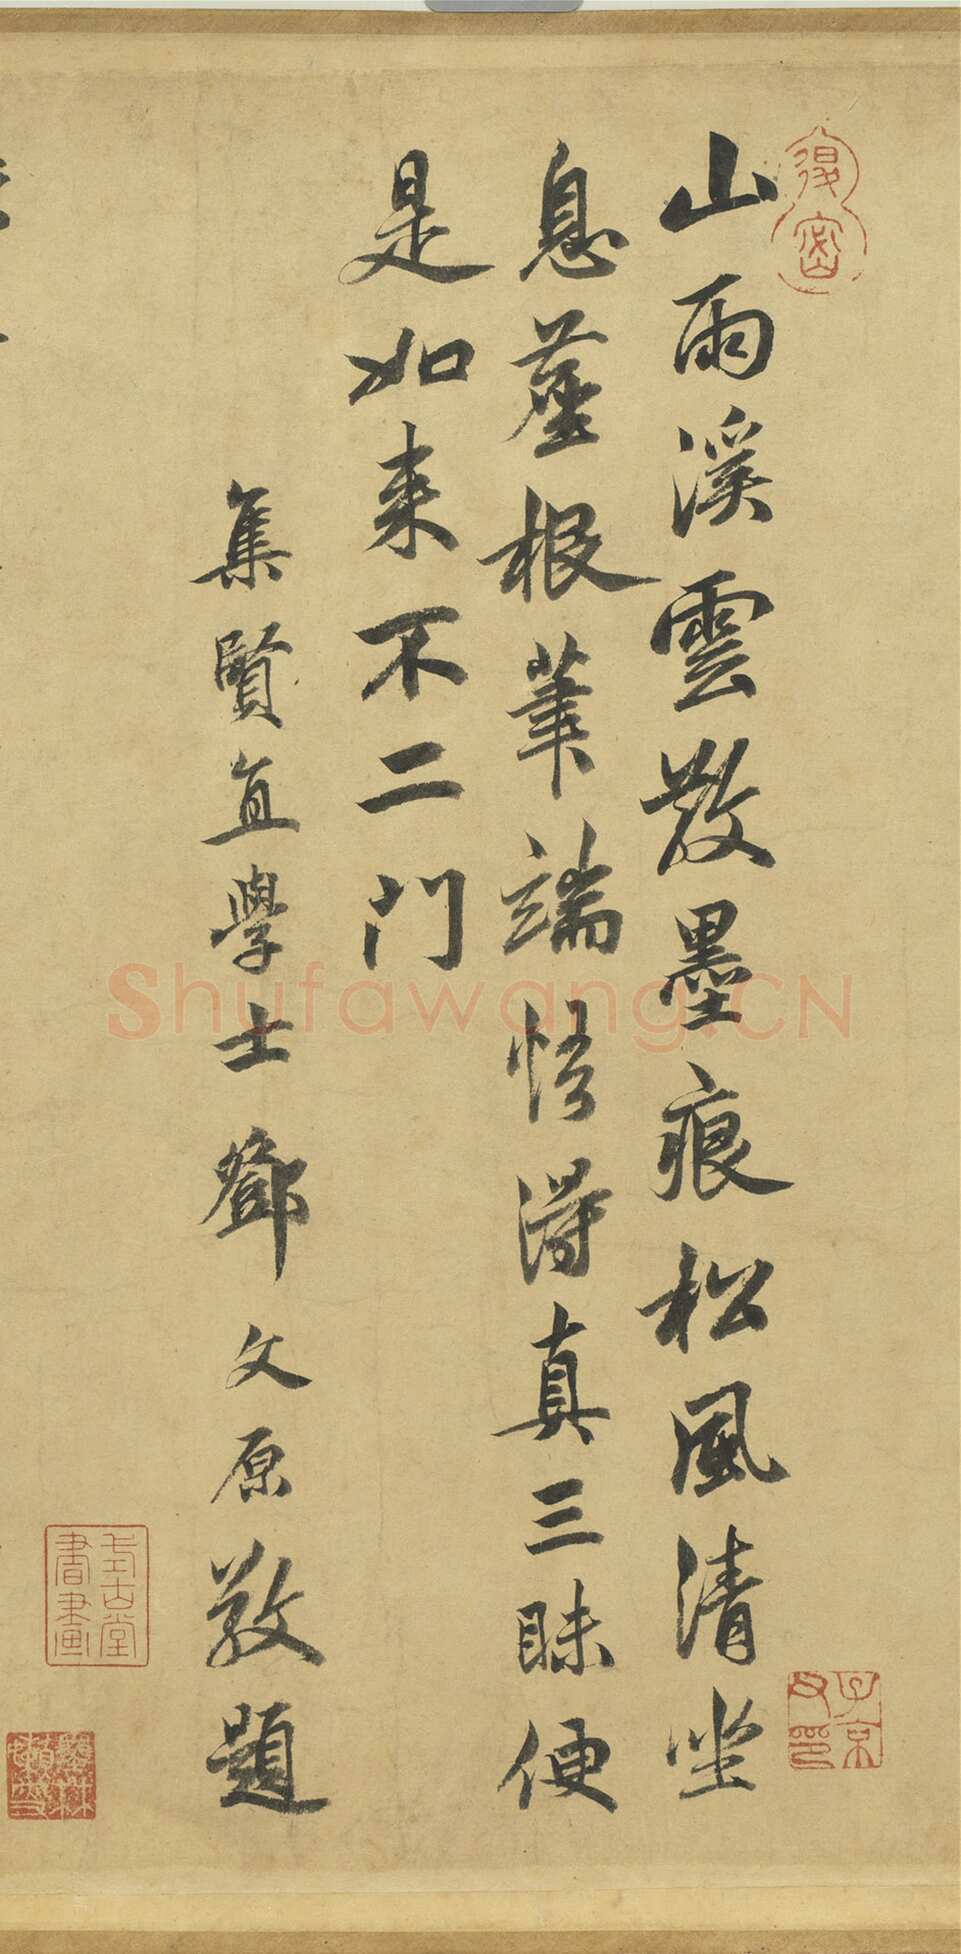 山雨溪雲散墨痕松風清坐
息塵根筆端悟得真三昧便
是如来不二門
集賢直學士鄧文原敬題
Shufawang.CN
子京父印